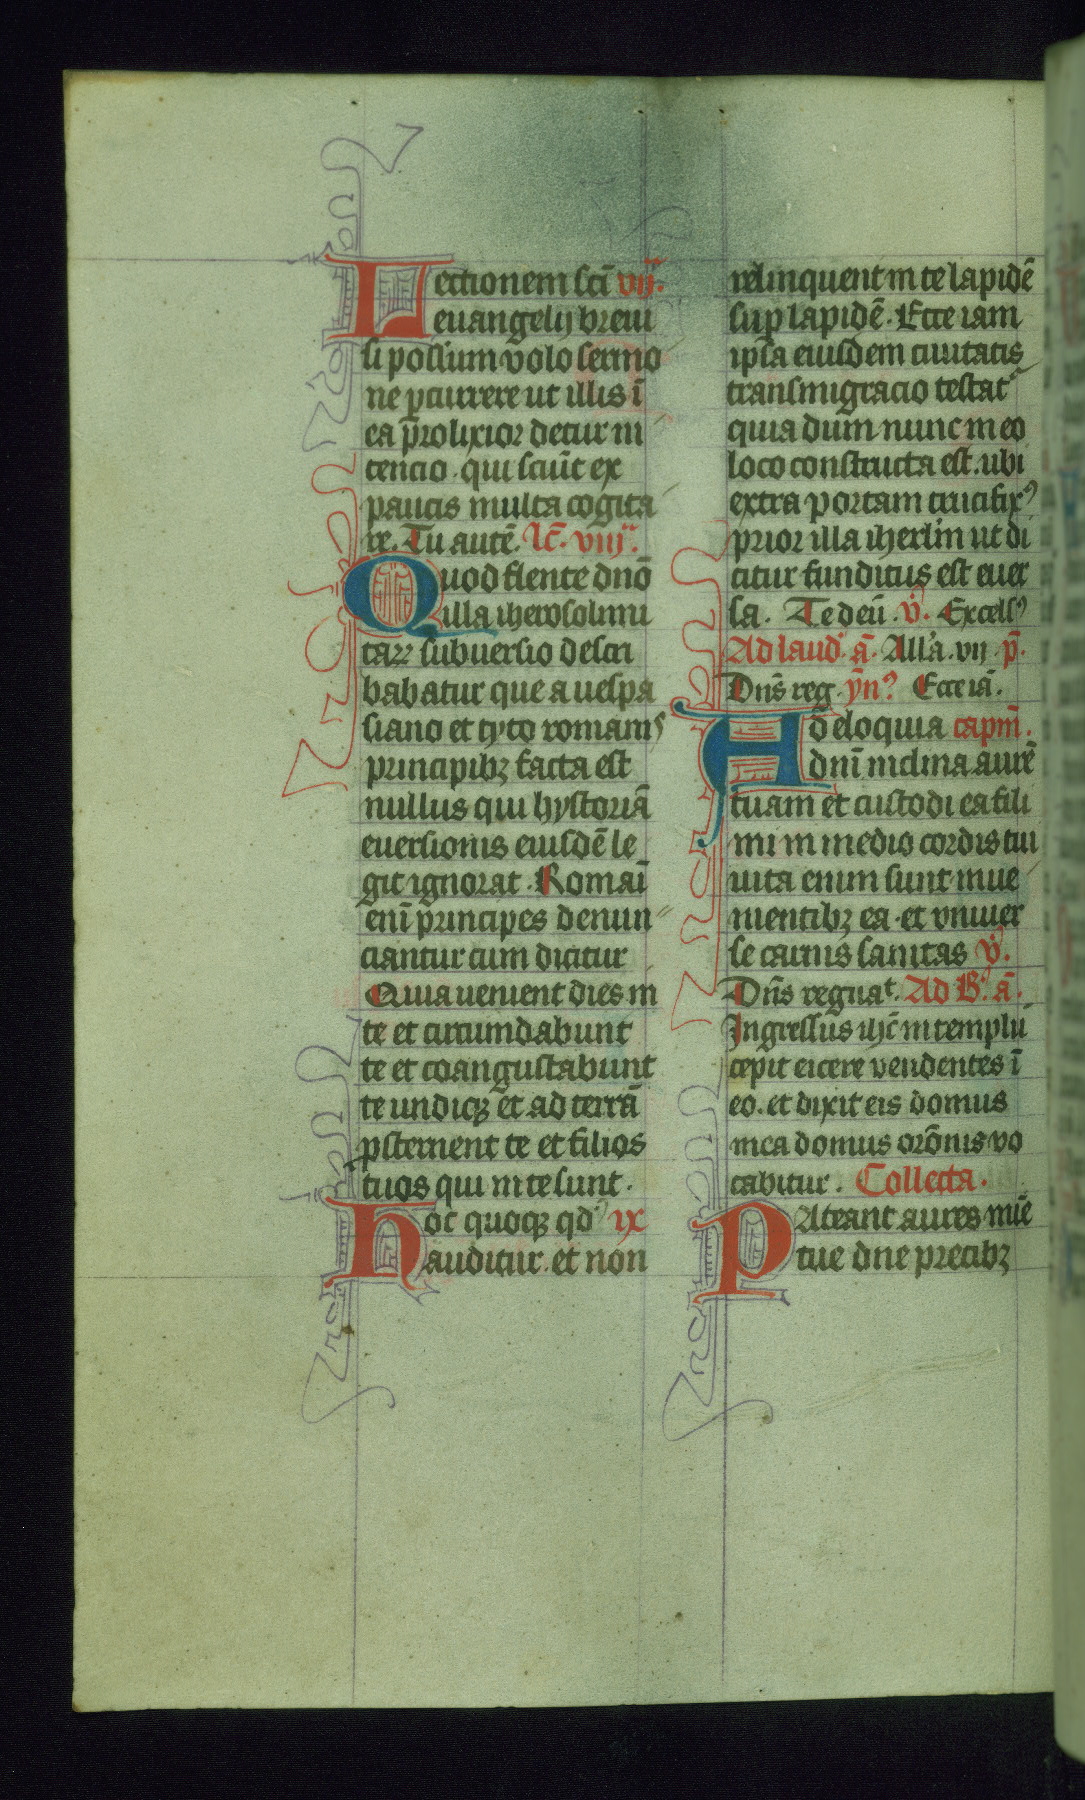 Lectionem sci̅ vij.
euangelij breui
si possum volo sermo
ne ꝑcurrere ut illis i̅
ea p̅rolixior detur in
tencio. qui sciu̅t ex
paucis multa cogita
re. Tu aute̅. lc̅. viij.
Quod flente dn̅o
illa iherosolimi
taꝝ subuersio descri
babatur que a uespa
siano et tyto romanis
principibꝫ facta est
nullus qui hystoria̅
euersionis eiusde̅ le
git ignorat. Romai̅
eni̅ principes denun
ciantur cum dicitur
Quia uenient dies in
te et circumdabunt
te et coangustabunt
te undiqꝫ et ad terra̅
ꝓsternent te et filios
tuos qui in te sunt.
Hoc quoqꝫ qd' ix
auditur. et non
relinquent in te lapide̅
suꝑ lapide̅. Ecce iam
ipsa eiusdem ciuitatis
transmigracio testat᷑
quia dum nunc in eo
loco constructa est. ubi
extra portam crucifixꝰ
prior illa iherl'm ut di
citur funditus est euer
sa. Te deu̅. v̉. Excelsꝰ
Ad laud'. a̅. All'a. vij. p̅.
Dn̅s reg. ym̅ꝰ Ecce ia̅.
Ad eloquia capm̅.
dni̅ inclina aure̅
tuam et custodi ea fili
mi in medio cordis tui
uita enim sunt inue
nientibꝫ ea. et vniuer
se carnis sanitas v̉.
Dn̅s regnat. Ad B'. a̅.
Ingressus ihc̅ in templu̅
cepit eicere vendentes i̅
eo. et dixit eis domus
mea domus oro̅nis vo
cabitur. Collecta.
PAteant aures mi̅e
tue dne precibꝫ